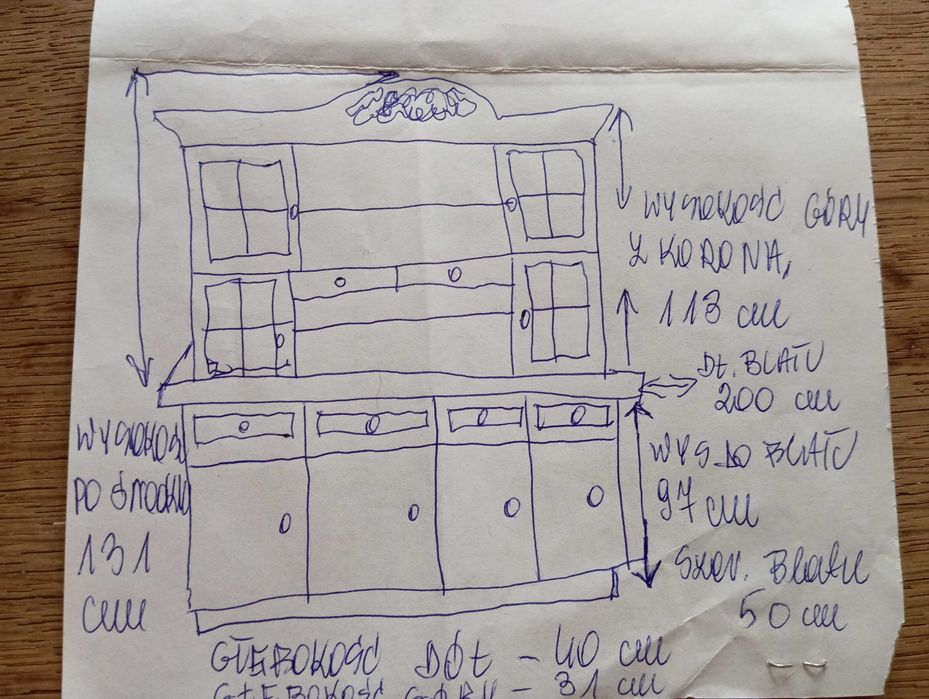 WYSOKOŚĆ GÓRY
Z KORONĄ
113 cm
DŁ. BLATU
200 cm
WYSOKOŚĆ
PO ŚRODKU
131
cm
WYS DO BLATU
97 cm
SZER. BLATU
50 cm
GŁĘBOKOŚĆ DÓŁ - 40 cm
GŁĘBOKOŚĆ GÓRY - 31 cm